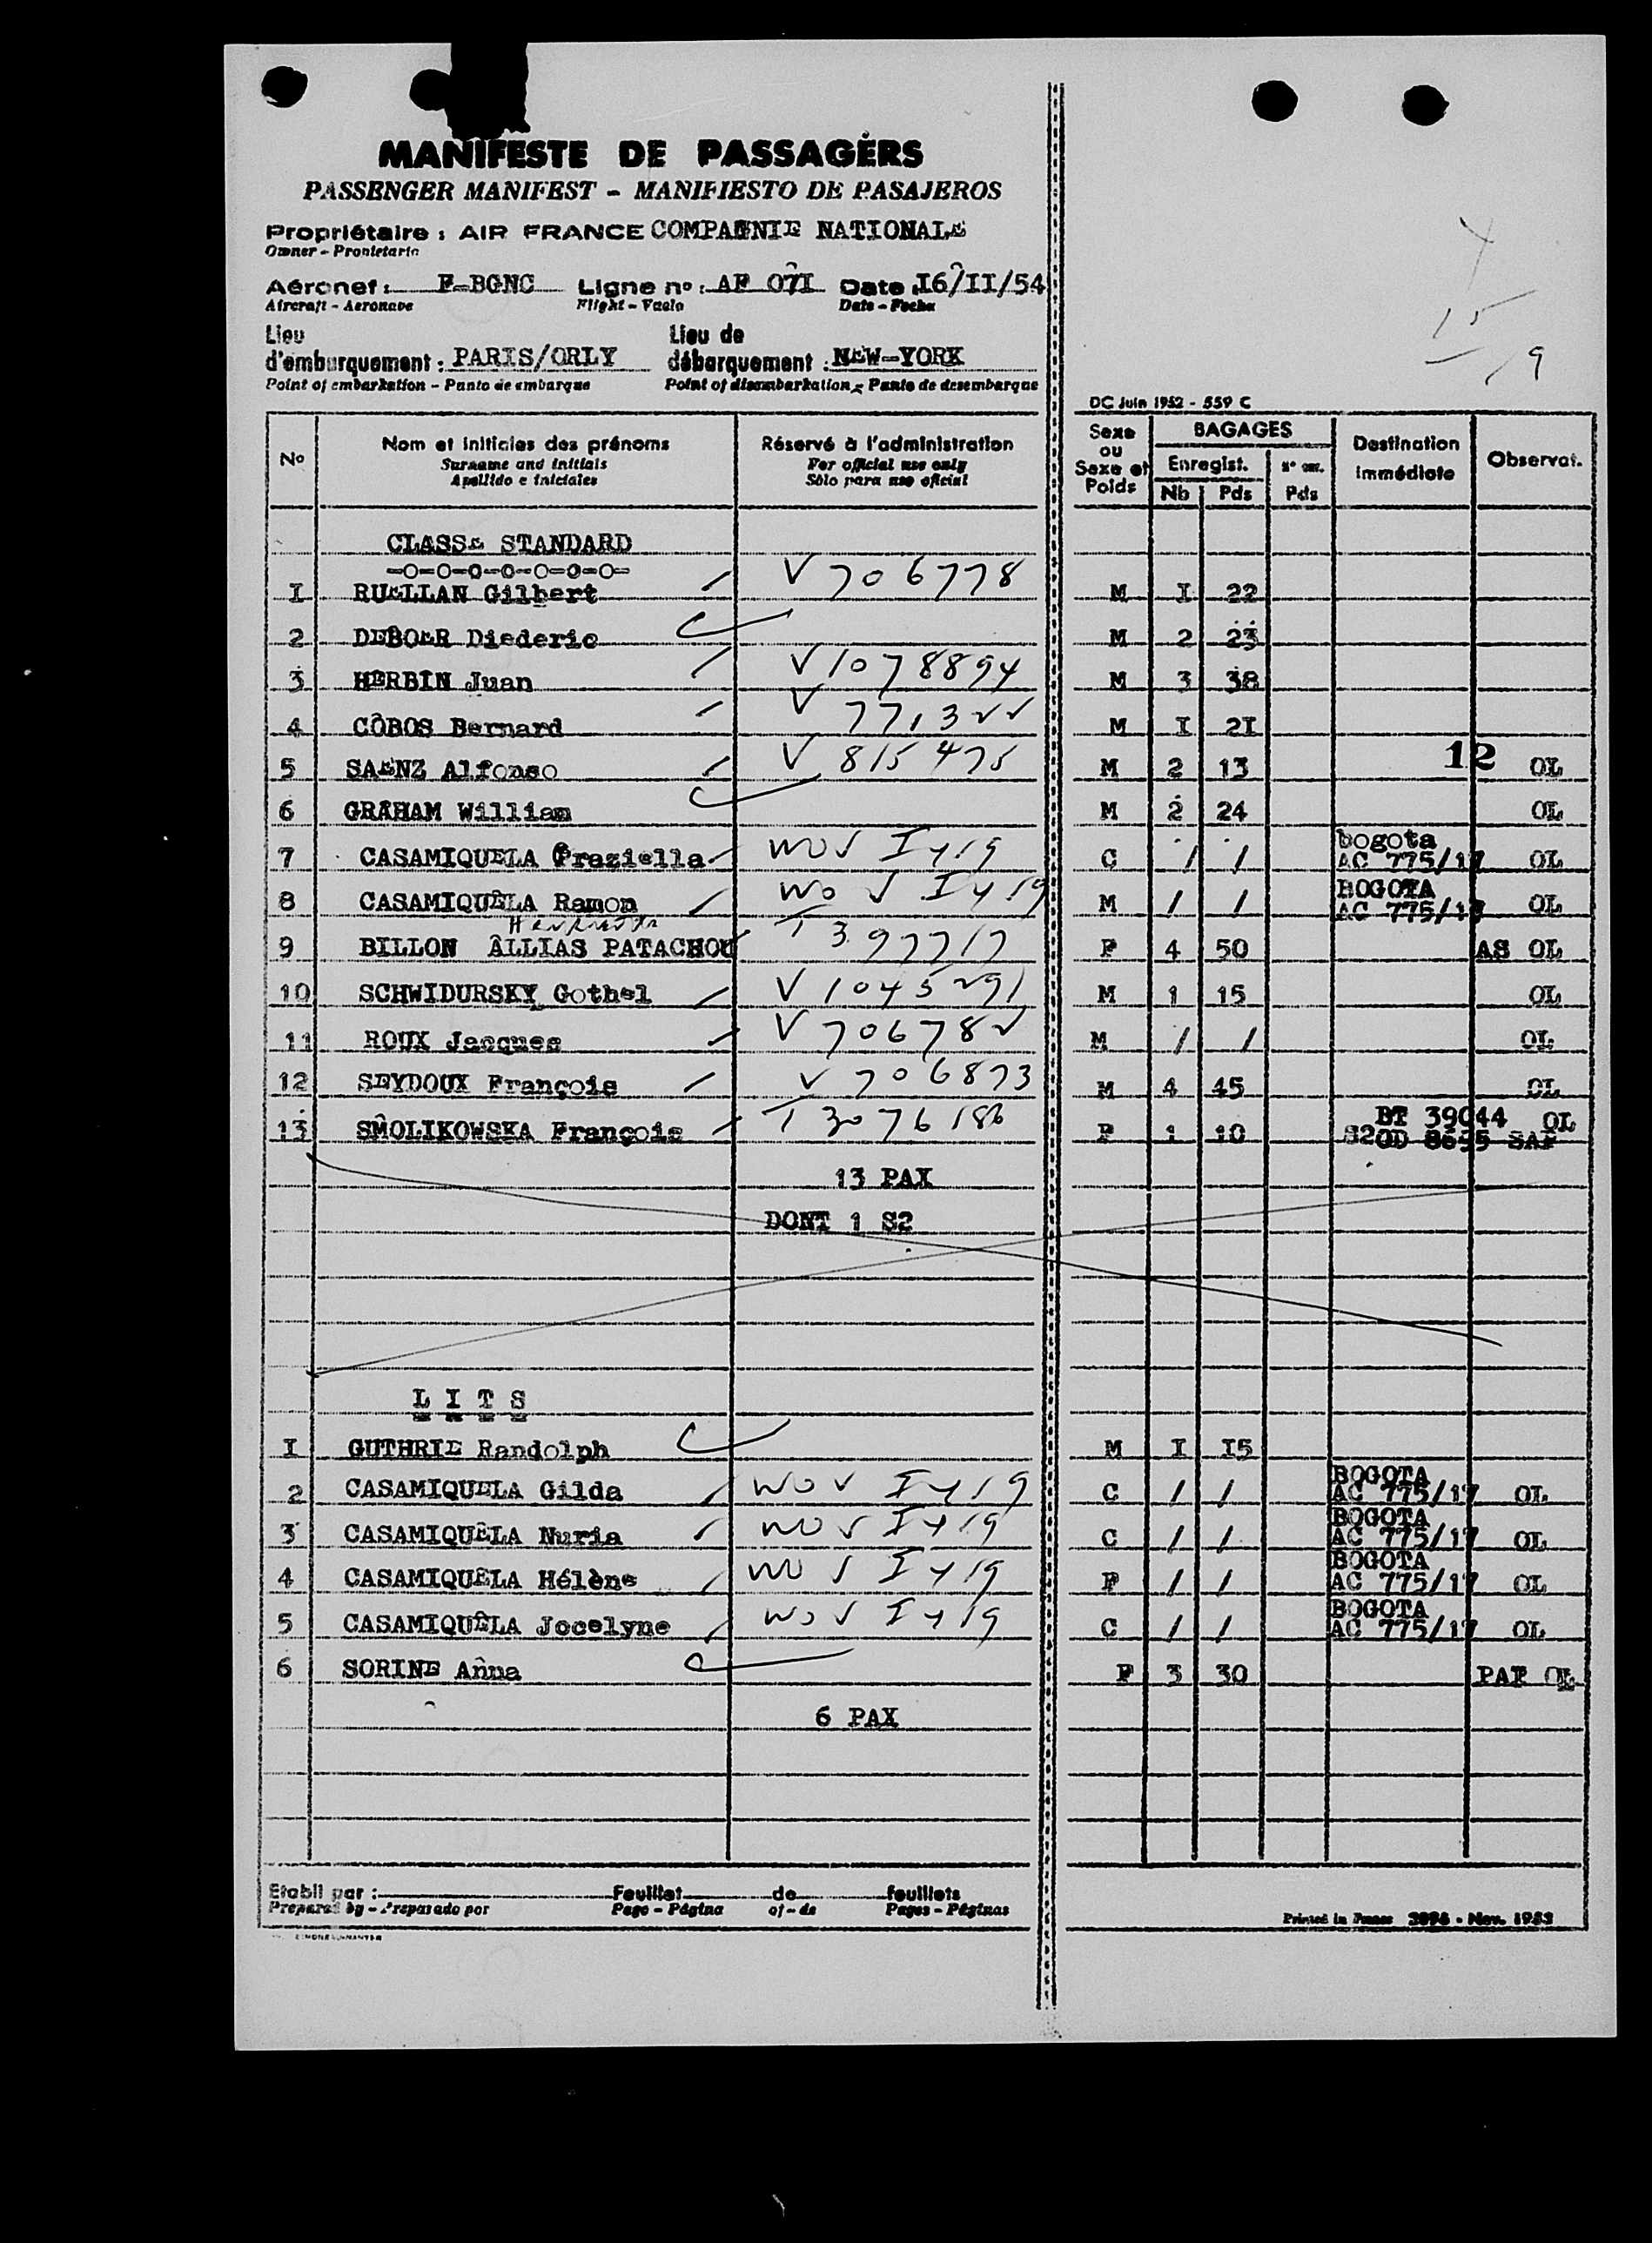 MANIFESTE DE PASSAGÈRS
PASSENGER MANIFEST - MANIFIESTO DE PASAJEROS
Propriétaire : AIR FRANCE COMPAGNIE NATIONALE
Owner - Propietario
Aéronef : F-BGNC Ligne no : AF 07I Date I6/II/54
Aircraft - Aeronave Flight - Vuelo Date - Fecha
Lieu Lieu de
d'embarquement : PARIS/ORLY débarquement : NEW-YORK
Point of embarkation - Punto de embarque Point of disembarkation - Punto de desembarque
15
19
DC Juin 1952 - 559 C
No Nom et initiales des prénoms Réservé à l'administration Sexe ou Sexe et Poids BAGAGES Destination immédiate Observat.
Surname and initials For official use only Enregist. N° enr.
Apellido e iniciales Sólo para uso oficial Nb Pds Pds
CLASSE STANDARD
-O-O-O-O-O-O-O-
I RUELLAN Gilbert V 706778 M I 22
2 DEBOER Diederic M 2 23
3 HERBIN Juan V 1078894 M 3 38
4 COBOS Bernard V 771322 M I 2I
5 SAENZ Alfonso V 815475 M 2 13 12 OL
6 GRAHAM William M 2 24 OL
7 CASAMIQUELA Graziella C / / bogota AC 775/17 OL
8 CASAMIQUELA Ramon M / / BOGOTA AC 775/17 OL
9 BILLON ALLIAS PATACHOU T 397717 F 4 50 AS OL
10 SCHWIDURSKY Gothel V 1045291 M 1 15 OL
11 ROUX Jacques V 706782 M / / OL
12 SEYDOUX François V 706873 M 4 45 OL
13 SMOLIKOWSKA François T 3076186 F 1 10 BT 39044 OL
S2OD 8695 SAF
13 PAX
DONT 1 S2
L I T S
I GUTHRIE Randolph M I I5
2 CASAMIQUELA Gilda C / / BOGOTA AC 775/17 OL
3 CASAMIQUELA Nuria C / / BOGOTA AC 775/17 OL
4 CASAMIQUELA Hélène F / / BOGOTA AC 775/17 OL
5 CASAMIQUELA Jocelyne C / / BOGOTA AC 775/17 OL
6 SORINE Anna F 3 30 PAF OL
6 PAX
Etabli par : Feuillet de feuillets
Prepared by - Preparado por Page - Página of - de Pages - Páginas
Printed in France 3096 - Nov. 1953